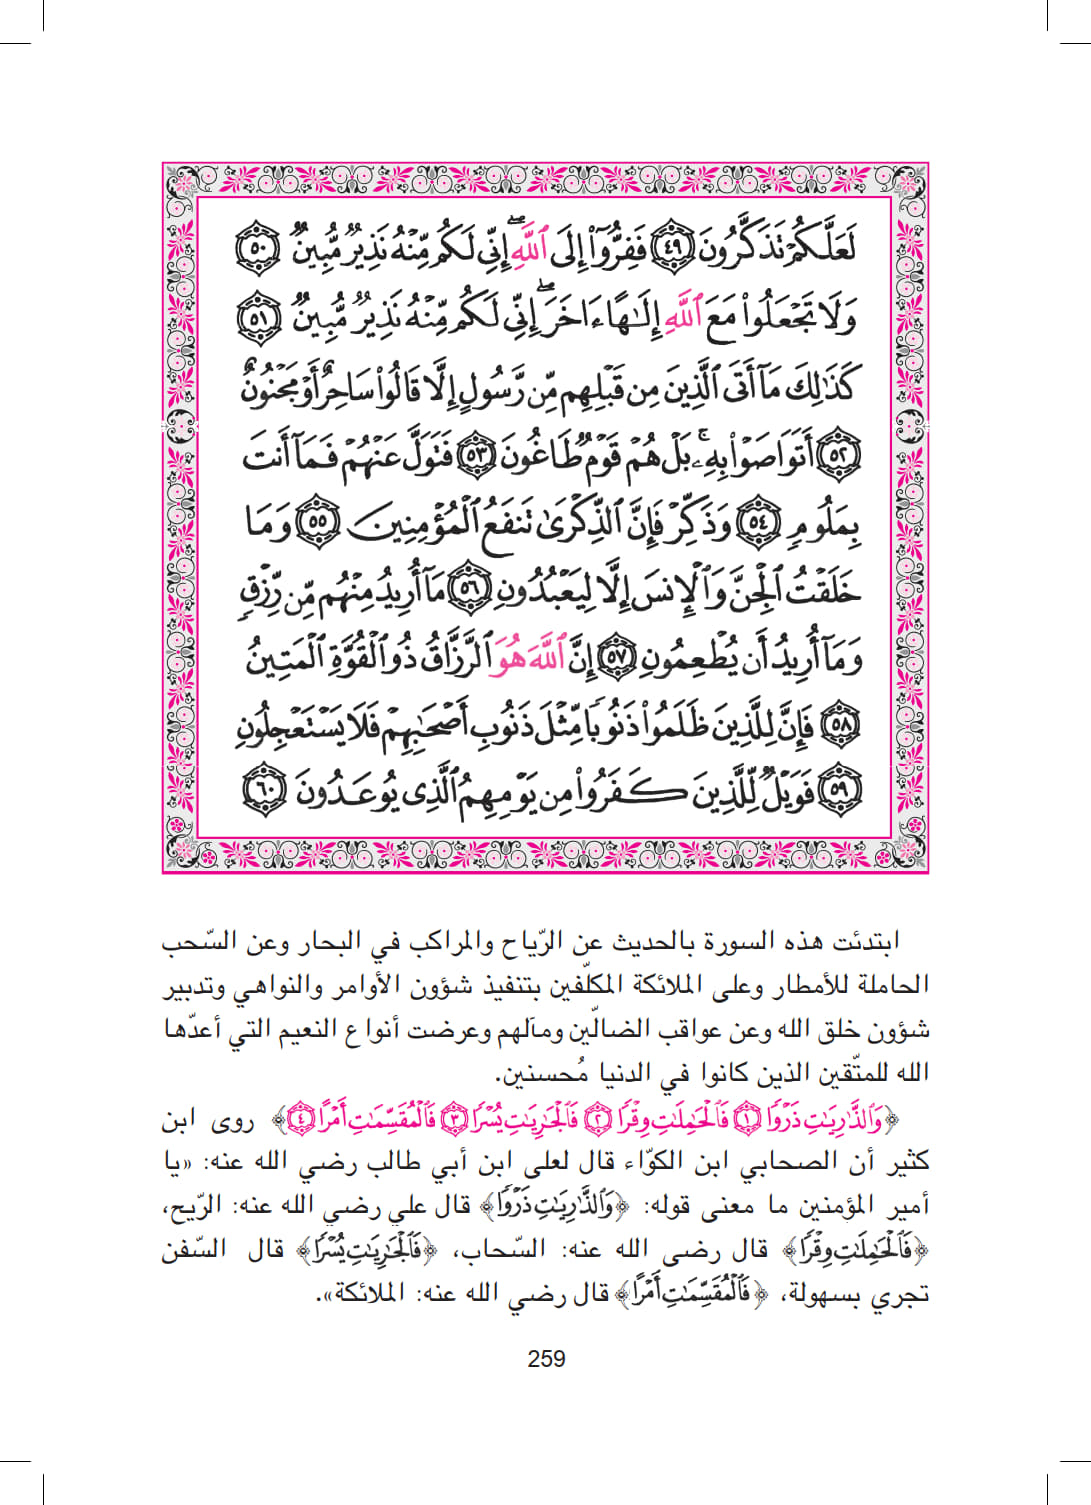 لَعَلَّكُمْ تَذَكَّرُونَ ٤٩ فَفِرُّوٓا۟ إِلَى ٱللَّهِ ۖ إِنِّى لَكُم مِّنْهُ نَذِيرٌ مُّبِينٌ ٥٠
وَلَا تَجْعَلُوا۟ مَعَ ٱللَّهِ إِلَـٰهًا ءَاخَرَ ۖ إِنِّى لَكُم مِّنْهُ نَذِيرٌ مُّبِينٌ ٥١
كَذَٰلِكَ مَآ أَتَى ٱلَّذِينَ مِن قَبْلِهِم مِّن رَّسُولٍ إِلَّا قَالُوا۟ سَاحِرٌ أَوْ مَجْنُونٌ
٥٢ أَتَوَاصَوْا۟ بِهِۦ ۚ بَلْ هُمْ قَوْمٌ طَاغُونَ ٥٣ فَتَوَلَّ عَنْهُمْ فَمَآ أَنتَ
بِمَلُومٍ ٥٤ وَذَكِّرْ فَإِنَّ ٱلذِّكْرَىٰ تَنفَعُ ٱلْمُؤْمِنِينَ ٥٥ وَمَا
خَلَقْتُ ٱلْجِنَّ وَٱلْإِنسَ إِلَّا لِيَعْبُدُونِ ٥٦ مَآ أُرِيدُ مِنْهُم مِّن رِّزْقٍ
وَمَآ أُرِيدُ أَن يُطْعِمُونِ ٥٧ إِنَّ ٱللَّهَ هُوَ ٱلرَّزَّاقُ ذُو ٱلْقُوَّةِ ٱلْمَتِينُ
٥٨ فَإِنَّ لِلَّذِينَ ظَلَمُوا۟ ذَنُوبًا مِّثْلَ ذَنُوبِ أَصْحَـٰبِهِمْ فَلَا يَسْتَعْجِلُونِ
٥٩ فَوَيْلٌ لِّلَّذِينَ كَفَرُوا۟ مِن يَوْمِهِمُ ٱلَّذِى يُوعَدُونَ ٦٠
ابتدئت هذه السورة بالحديث عن الرّياح والمراكب في البحار وعن السّحب
الحاملة للأمطار وعلى الملائكة المكلّفين بتنفيذ شؤون الأوامر والنواهي وتدبير
شؤون خلق الله وعن عواقب الضالّين ومآلهم وعرضت أنواع النعيم التي أعدّها
الله للمتّقين الذين كانوا في الدنيا مُحسنين.
﴿وَٱلذَّٰرِيَـٰتِ ذَرْوًا ١ فَٱلْحَـٰمِلَـٰتِ وِقْرًا ٢ فَٱلْجَـٰرِيَـٰتِ يُسْرًا ٣ فَٱلْمُقَسِّمَـٰتِ أَمْرًا ٤﴾ روى ابن
كثير أن الصحابي ابن الكوّاء قال لعلى ابن أبي طالب رضي الله عنه: «يا
أمير المؤمنين ما معنى قوله: ﴿وَٱلذَّٰرِيَـٰتِ ذَرْوًا﴾ قال علي رضي الله عنه: الرّيح،
﴿فَٱلْحَـٰمِلَـٰتِ وِقْرًا﴾ قال رضى الله عنه: السّحاب، ﴿فَٱلْجَـٰرِيَـٰتِ يُسْرًا﴾ قال السّفن
تجري بسهولة، ﴿فَٱلْمُقَسِّمَـٰتِ أَمْرًا﴾ قال رضي الله عنه: الملائكة».
259